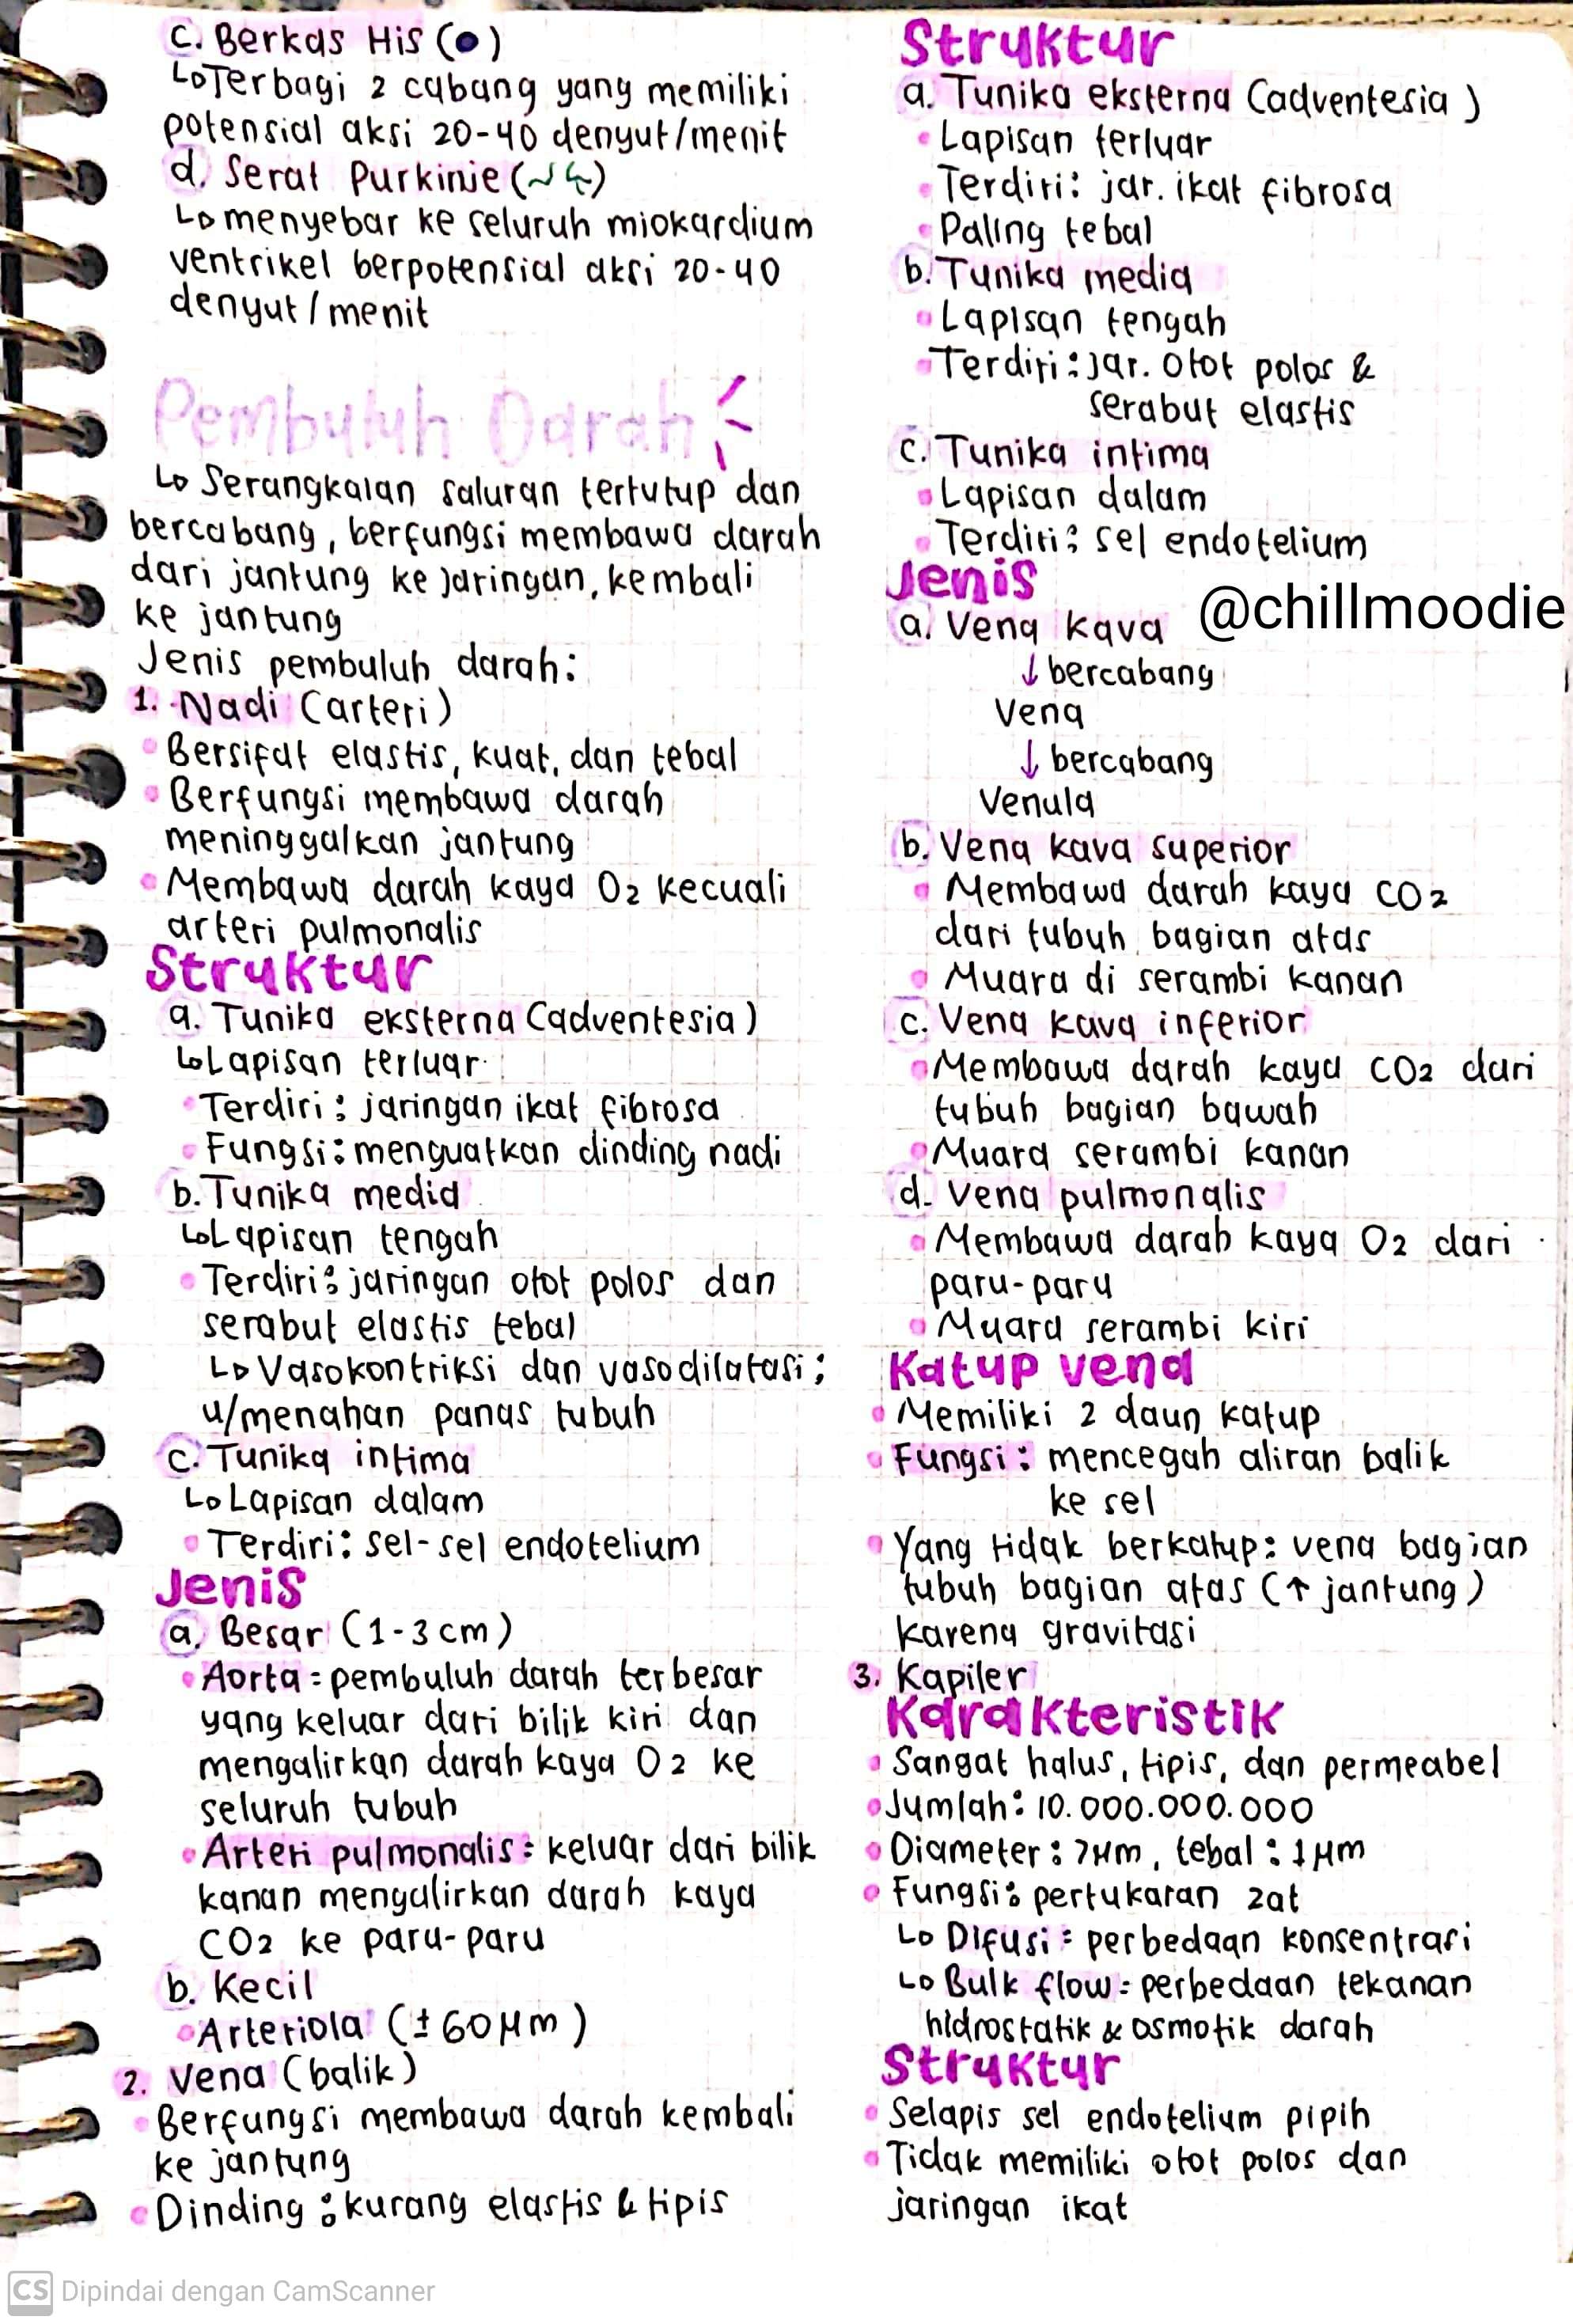 c. Berkas His (●)
↳ Terbagi 2 cabang yang memiliki
potensial aksi 20-40 denyut/menit
d. Serat Purkinje (
↳ menyebar ke seluruh miokardium
ventrikel berpotensial aksi 20-40
denyut/menit
Pembuluh Darah
↳ Serangkaian saluran tertutup dan
bercabang, berfungsi membawa darah
dari jantung ke jaringan, kembali
ke jantung
Jenis pembuluh darah:
1. Nadi (arteri)
• Bersifat elastis, kuat, dan tebal
• Berfungsi membawa darah
meninggalkan jantung
• Membawa darah kaya O2 kecuali
arteri pulmonalis
Struktur
a. Tunika eksterna (adventesia)
↳ Lapisan terluar
• Terdiri: jaringan ikat fibrosa
• Fungsi: menguatkan dinding nadi
b. Tunika media
↳ Lapisan tengah
• Terdiri: jaringan otot polos dan
serabut elastis tebal
↳ Vasokontriksi dan vasodilatasi:
u/menahan panas tubuh
c. Tunika intima
↳ Lapisan dalam
• Terdiri: sel-sel endotelium
Jenis
a. Besar (1-3 cm)
• Aorta = pembuluh darah terbesar
yang keluar dari bilik kiri dan
mengalirkan darah kaya O2 ke
seluruh tubuh
• Arteri pulmonalis = keluar dari bilik
kanan mengalirkan darah kaya
CO2 ke paru-paru
b. Kecil
• Arteriola (± 60 μm)
2. Vena (balik)
• Berfungsi membawa darah kembali
ke jantung
• Dinding: kurang elastis & tipis
Struktur
a. Tunika eksterna (adventesia)
• Lapisan terluar
• Terdiri: jar. ikat fibrosa
• Paling tebal
b. Tunika media
• Lapisan tengah
• Terdiri: jar. otot polos &
serabut elastis
c. Tunika intima
• Lapisan dalam
• Terdiri: sel endotelium
Jenis
@chillmoodie
a. Vena kava
↓ bercabang
Vena
↓ bercabang
Venula
b. Vena kava superior
• Membawa darah kaya CO2
dari tubuh bagian atas
• Muara di serambi kanan
c. Vena kava inferior
• Membawa darah kaya CO2 dari
tubuh bagian bawah
• Muara serambi kanan
d. Vena pulmonalis
• Membawa darah kaya O2 dari
paru-paru
• Muara serambi kiri
Katup vena
• Memiliki 2 daun katup
• Fungsi: mencegah aliran balik
ke sel
• Yang tidak berkatup: vena bagian
tubuh bagian atas (↑ jantung)
karena gravitasi
3. Kapiler
Karakteristik
• Sangat halus, tipis, dan permeabel
• Jumlah: 10.000.000.000
• Diameter: 7μm, tebal: 1μm
• Fungsi: pertukaran zat
↳ Difusi = perbedaan konsentrasi
↳ Bulk flow = perbedaan tekanan
hidrostatik & osmotik darah
Struktur
• Selapis sel endotelium pipih
• Tidak memiliki otot polos dan
jaringan ikat
CS Dipindai dengan CamScanner